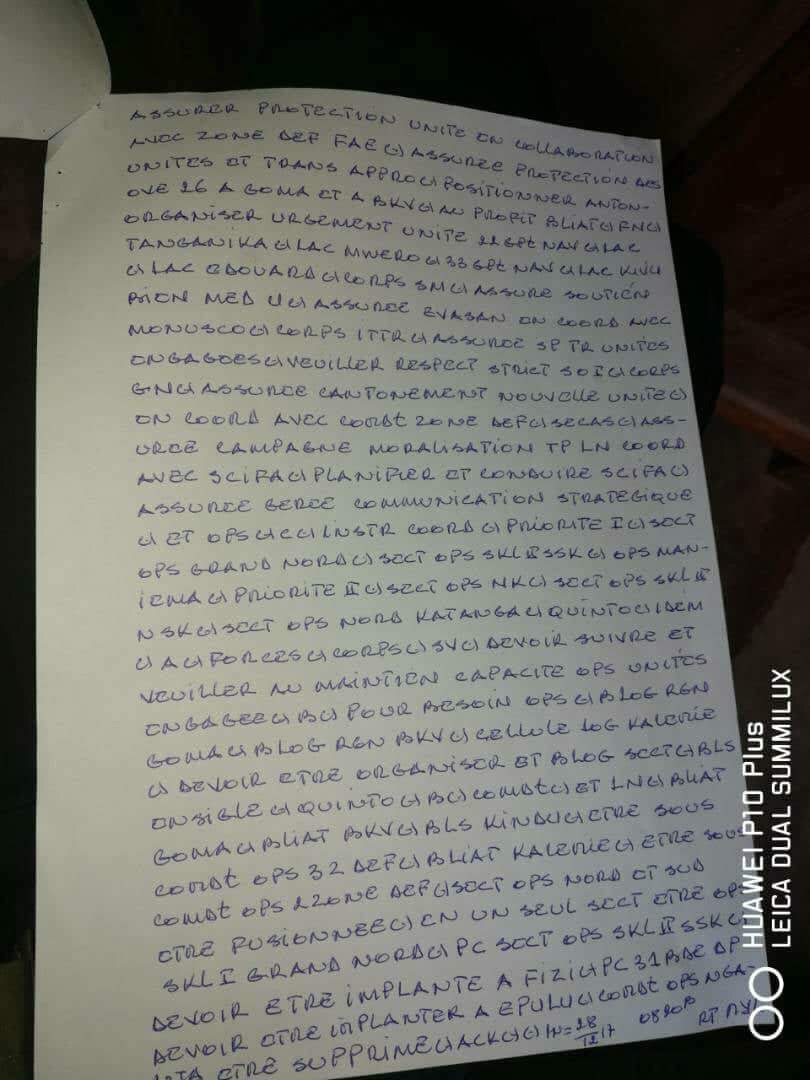 ASSURER PROTECTION UNITE EN COLLABORATION
AVEC ZONE DEF FAE(-) ASSUREE PROTECTION DES
UNITES ET TRANS APPRO(-) POSITIONNER ANTON-
OVE 26 A GOMA ET A BKV(-) AU PROFIT BLIAT(-) FN(-)
ORGANISER URGEMENT UNITE 22 GPt NAV(-) LAC
TANGANIKA(-) LAC MWERO(-) 33 GPt NAV(-) LAC KIVU
(-) LAC EDOUARD(-) CORPS SM(-) ASSURE SOUTIEN
BION MED U(-) ASSUREE EVASAN EN COORD AVEC
MONUSCO(-) CORPS ITTR(-) ASSUREE SP TR UNITES
ENGAGEES(-) VEUILLER RESPECT STRICT SOI(-) CORPS
GN(-) ASSUREE CANTONEMENT NOUVELLE UNITE(-)
EN COORD AVEC COMDt ZONE DEF(-) SECAS(-) ASS-
UREE CAMPAGNE MORALISATION TP LN COORD
AVEC SCIFA(-) PLANIFIER ET CONDUIRE SCIFA(-)
ASSUREE GEREE COMMUNICATION STRATEGIQUE
(-) ET OPS(-) C(-) INSTR COORD(-) PRIORITE I(-) SECT
OPS GRAND NORD(-) SECT OPS SKL II SSK(-) OPS MAN-
IEMA(-) PRIORITE II(-) SECT OPS NK(-) SECT OPS SKL II
NSK(-) SECT OPS NORD KATANGA(-) QUINTO(-) IDEM
(-) A(-) FORCES(-) CORPS(-) SV(-) DEVOIR SUIVRE ET
VEUILLER AU MAINTIEN CAPACITE OPS UNITES
ENGAGEE(-) B(-) POUR BESOIN OPS(-) BLOG RGN
GOMA(-) BLOG RGN BKV(-) CELLULE LOG KALEMIE
(-) DEVOIR ETRE ORGANISER ET BLOG SECT(-) BLS
ENSIBLE(-) QUINTO(-) B(-) COMDt(-) ET LN(-) BLIAT
GOMA(-) BLIAT BKV(-) BLS KINDU(-) ETRE SOUS
COMDt OPS 32 DEF(-) BLIAT KALEMIE(-) ETRE SOUS
COMDt OPS 2 ZONE DEF(-) SECT OPS NORD ET SUD
ETRE FUSIONNEE(-) EN UN SEUL SECT ETRE OPS
SKL I GRAND NORD(-) PC SECT OPS SKL II SSK(-)
DEVOIR ETRE IMPLANTE A FIZI(-) PC 31 BDE
DEVOIR ETRE IMPLANTER A EPULU(-) COMDt OPS NGA-
ETRE SUPPRIME(-) ACK(-)(-) N= 28/12/17 0820
HUAWEI P10 Plus
LEICA DUAL SUMMILUX